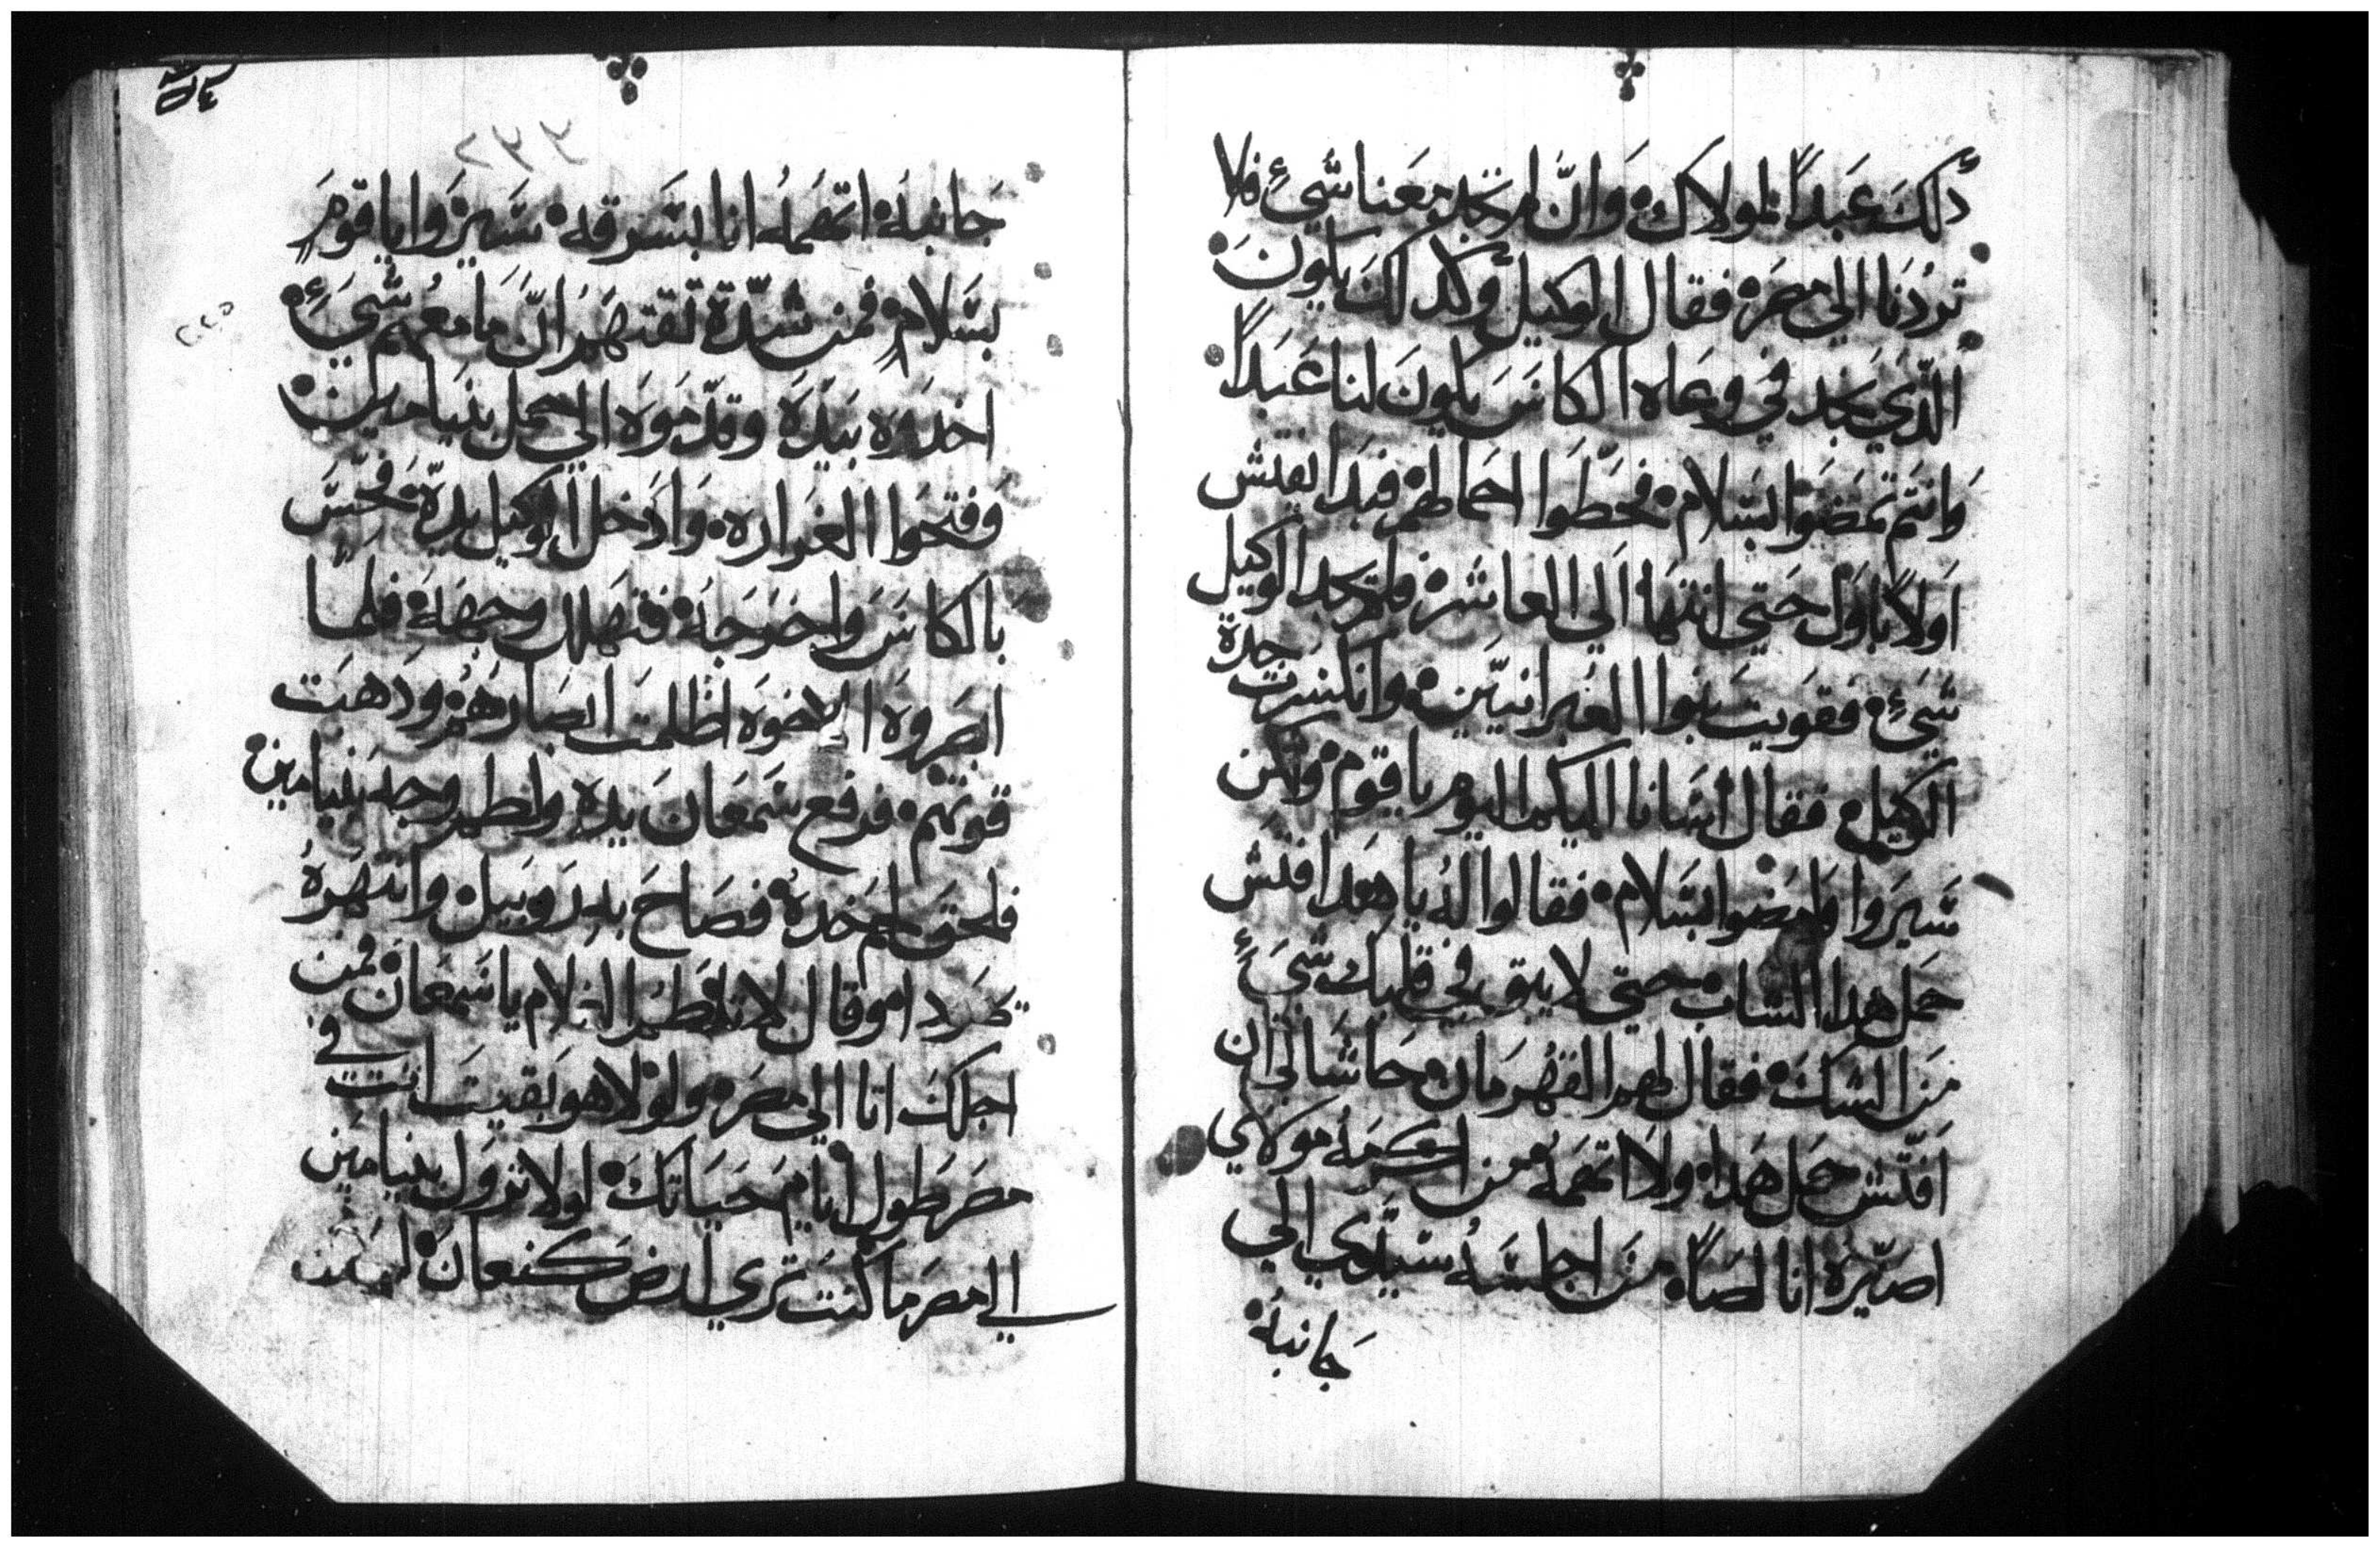 دلك عبداً لمولاك. وان لم تجد معنا شيءٍ فلا
تردنا الي مصر. فقال الوكيل وكدلك يكون.
الدي يجد في وعاه الكاس يكون لنا عبداً.
وانتم تمضوا بسلام. فحطوا احمالهم. فبدا يفتش
اولاً باول حتي انتها الي العاشر. فلم يجد الوكيل
شيءٍ. فقويت بنوا العبرانيين. وانكسرت حدة
الوكيل. فقال اسانا اليكم اليوم يا قوم. ولكن
سيروا وامضوا بسلام. فقالوا له يا هدا فتش
حمل هدا الشاب. حتي لا يبق في قلبك شيءٍ
من الشك. فقال لهم القهرمان. حاشا لي ان
افتش حمل هدا. ولا اتهمه. من اكرمه مولاي
اصيره انا لصاً. من اجلسه سيدي الي
جانبه.
٢٢٦
جانبه. اتهمه انا بسرقه. سيروا يا قوم
بسلام. فمن شدة تقتهم ان ما معهم شيءٍ.
اخدوه بيده وقدموه الي حمل بنيامين.
وفتحوا الغراره. وادخل الوكيل يده. فحس
بالكاس واخرجه. فتهلل وجهه. فلما
ابصروه الاخوه اظلمت ابصارهم. ودهبت
قوتهم. فرفع سمعان يده ولطم وجه بنيامين.
فلحق لحم خده. فصاح به روبيل. وانتهره
يهودا. وقال لا تلطم الغلام يا سمعان. فمن
اجلك اتا الي مصر. ولولا هو بقيت انت في
مصر طول ايام حياتك. لولا نزول بنيامين
الي مصر ما كنت تري ارض كنعان. لكن